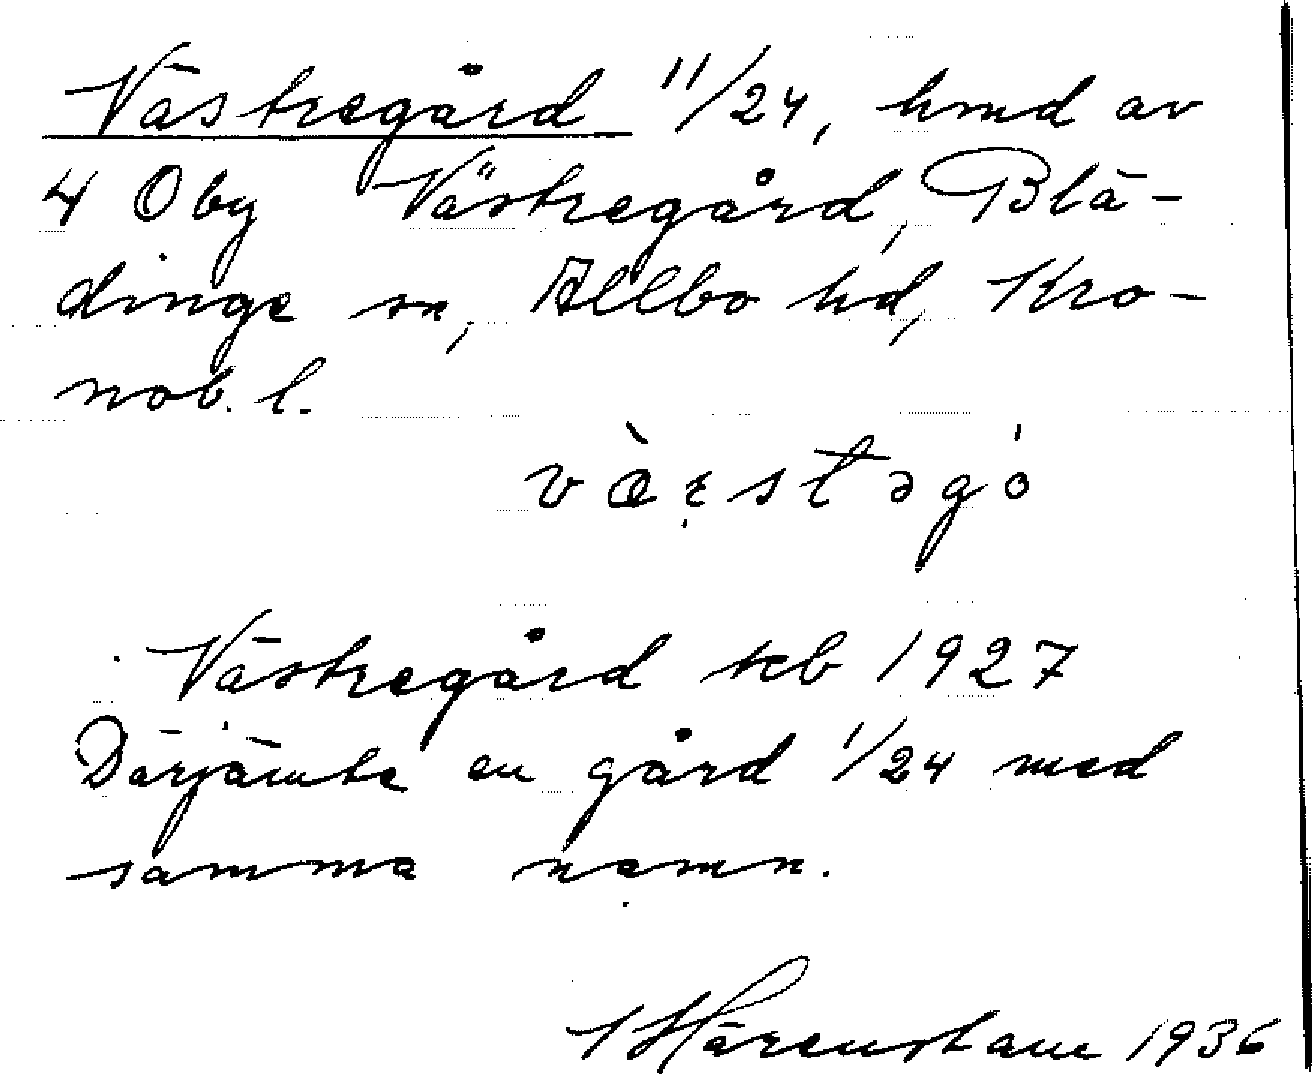 Västregård 11/24, hmd av
4 Oby Västregård, Blä-
dinge sn, Allbo hd, Kro-
nob. l.
vàɛ̣stəgó
Västregård kb 1927
Därjämte en gård 1/24 med
samma namn.
Härenstam 1936